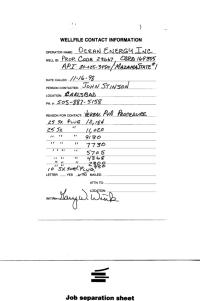 WELLFILE CONTACT INFORMATION
OPERATOR NAME: OCEAN ENERGY INC
WELL ID: PROP. CODE 23667, CBRD 164355
API 30-025-3050 / MAZAMA STATE
DATE CALLED: 11-16-98
PERSON CONTACTED: JOHN STINSON
LOCATION: CARLSBAD
PH. #: 505-887-5158
REASON FOR CONTACT: VERBAL P&A PROCEDURE
25 SX PLUG 12,184
25 SX " 11,020
" " " 9180
" " " 7730
" " " 5705
" " " 4568
" " "
10 SX SURF PLUG
LETTER YES NO MAILED
ATTN TO:
LOCATION:
INITIAL:
Job separation sheet